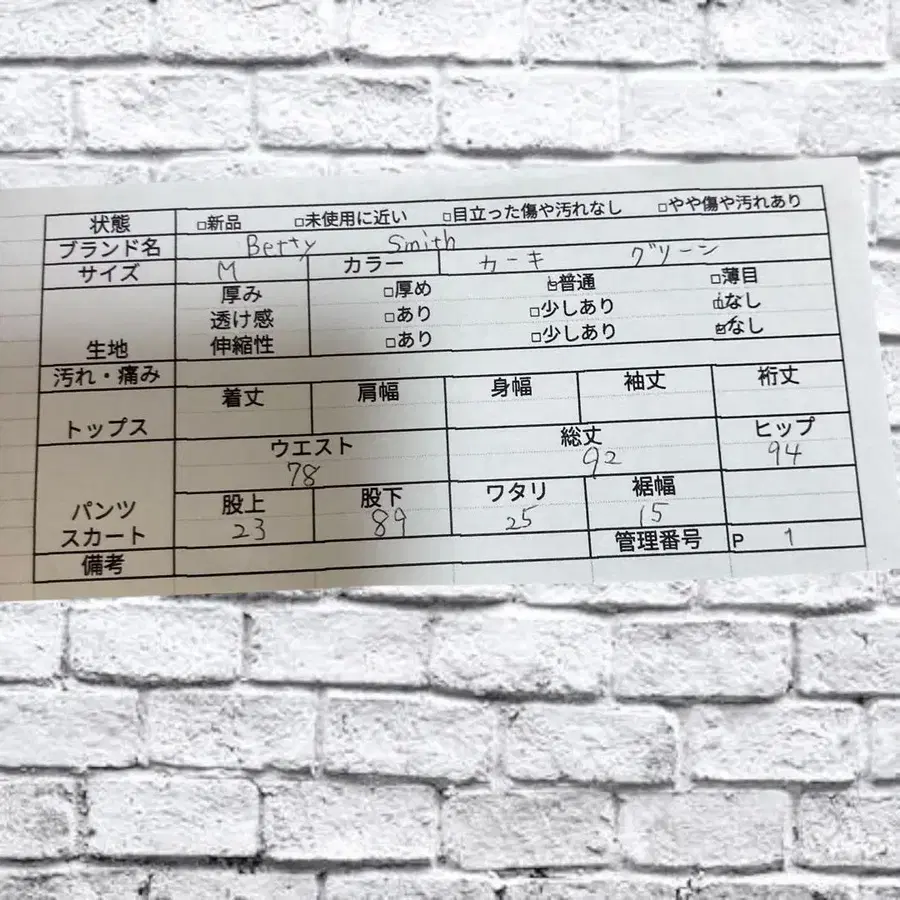 状態 □新品 □未使用に近い □目立った傷や汚れなし □やや傷や汚れあり
ブランド名 Betty Smith
サイズ M カラー カーキ グリーン
厚み □厚め □普通 □薄目
透け感 □あり □少しあり □なし
生地 伸縮性 □あり □少しあり □なし
汚れ・痛み
トップス 着丈 肩幅 身幅 袖丈 裄丈
ウエスト 総丈 ヒップ
78 92 94
パンツ 股上 股下 ワタリ 裾幅
スカート 23 89 25 15
備考 管理番号 P 1